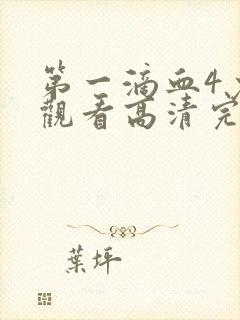 第一滴血4
觀看高清完
葉坪